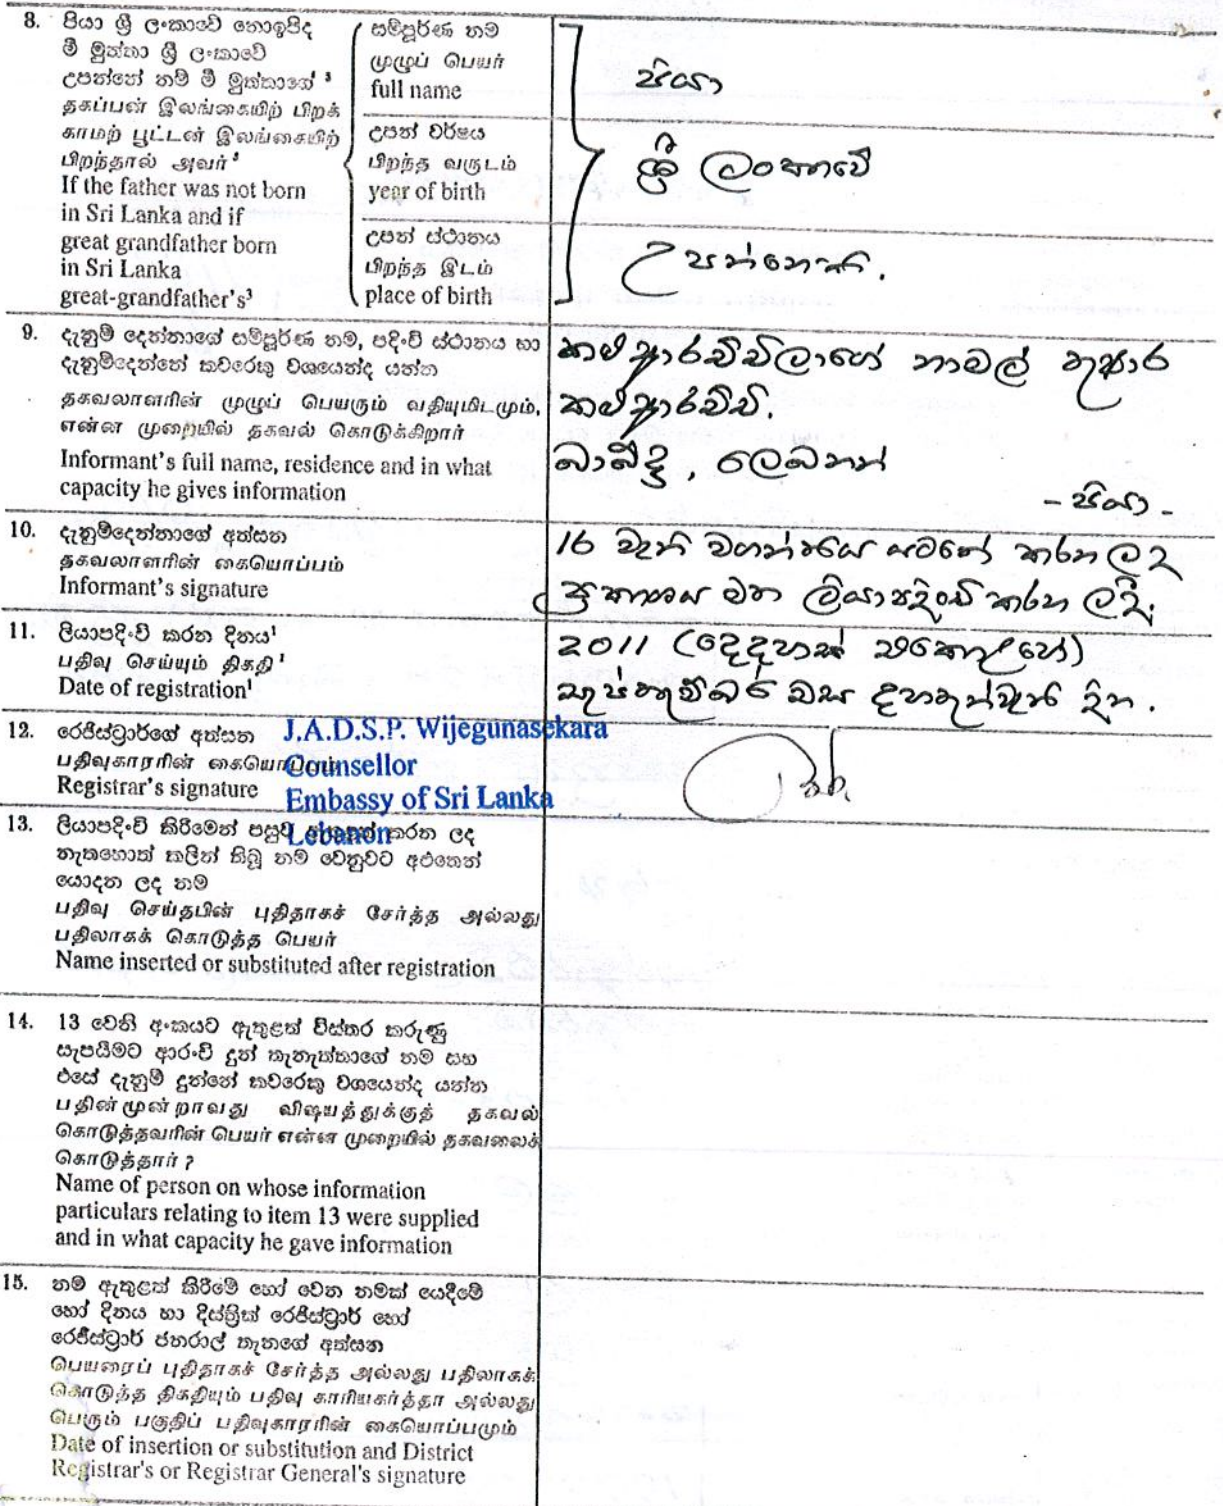 8. පියා ශ්‍රී ලංකාවේ නොඉපිද
මී මුත්තා ශ්‍රී ලංකාවේ
උපන්නේ නම් මී මුත්තාගේ ³
தகப்பன் இலங்கையிற் பிறக்
காமற் பூட்டன் இலங்கையிற்
பிறந்தால் அவர் ³
If the father was not born
in Sri Lanka and if
great grandfather born
in Sri Lanka
great-grandfather's³
සම්පූර්ණ නම
முழுப் பெயர்
full name
උපන් වර්ෂය
பிறந்த வருடம்
year of birth
උපන් ස්ථානය
பிறந்த இடம்
place of birth
පියා
ශ්‍රී ලංකාවේ
උපන්නෙකි.
9. දැනුම් දෙන්නාගේ සම්පූර්ණ නම, පදිංචි ස්ථානය හා
දැනුම්දෙන්නේ කවරෙකු වශයෙන්ද යන්න
தகவலாளரின் முழுப் பெயரும் வதியுமிடமும்,
என்ன முறையில் தகவல் கொடுக்கிறார்
Informant's full name, residence and in what
capacity he gives information
කම්ආරච්චිලාගේ නාමල් තුෂාර
කම්ආරච්චි.
බාබ්දු, ලෙබනන්
- පියා -
10. දැනුම්දෙන්නාගේ අත්සන
தகவலாளரின் கையொப்பம்
Informant's signature
16 වැනි වගන්තියෙ සටහන් කරන ලද
ප්‍රකාශය මත ලියාපදිංචි කරන ලදී.
11. ලියාපදිංචි කරන දිනය¹
பதிவு செய்யும் திகதி ¹
Date of registration¹
2011 (දෙදහස් එකොළහේ)
සැප්තැම්බර් මස දහතුන්වැනි දින.
12. රෙජිස්ට්‍රාර්ගේ අත්සන
பதிவுகாரரின் கையொப்பம்
Registrar's signature
J.A.D.S.P. Wijegunasekara
Counsellor
Embassy of Sri Lanka
Lebanon
13. ලියාපදිංචි කිරීමෙන් පසුව කරන ලද
නැතහොත් කලින් තිබූ නම වෙනුවට අළුතෙන්
යොදන ලද නම
பதிவு செய்தபின் புதிதாகச் சேர்த்த அல்லது
பதிலாகக் கொடுத்த பெயர்
Name inserted or substituted after registration
14. 13 වෙනි අංකයට ඇතුළත් විස්තර කරුණු
සැපයීමට ආරංචි දුන් තැනැත්තාගේ නම සහ
එසේ දැනුම් දුන්නේ කවරෙකු වශයෙන්ද යන්න
பதின்மூன்றாவது விஷயத்துக்குத் தகவல்
கொடுத்தவரின் பெயர் என்ன முறையில் தகவலைக்
கொடுத்தார் ?
Name of person on whose information
particulars relating to item 13 were supplied
and in what capacity he gave information
15. නම් ඇතුළත් කිරීමේ හෝ වෙන නමක් යෙදීමේ
හෝ දිනය හා දිස්ත්‍රික් රෙජිස්ට්‍රාර් හෝ
රෙජිස්ට්‍රාර් ජනරාල් තැනගේ අත්සන
பெயரைப் புதிதாகச் சேர்த்த அல்லது பதிலாகக்
கொடுத்த திகதியும் பதிவு காரியகர்த்தா அல்லது
பெரும் பகுதிப் பதிவுகாரரின் கையொப்பமும்
Date of insertion or substitution and District
Registrar's or Registrar General's signature